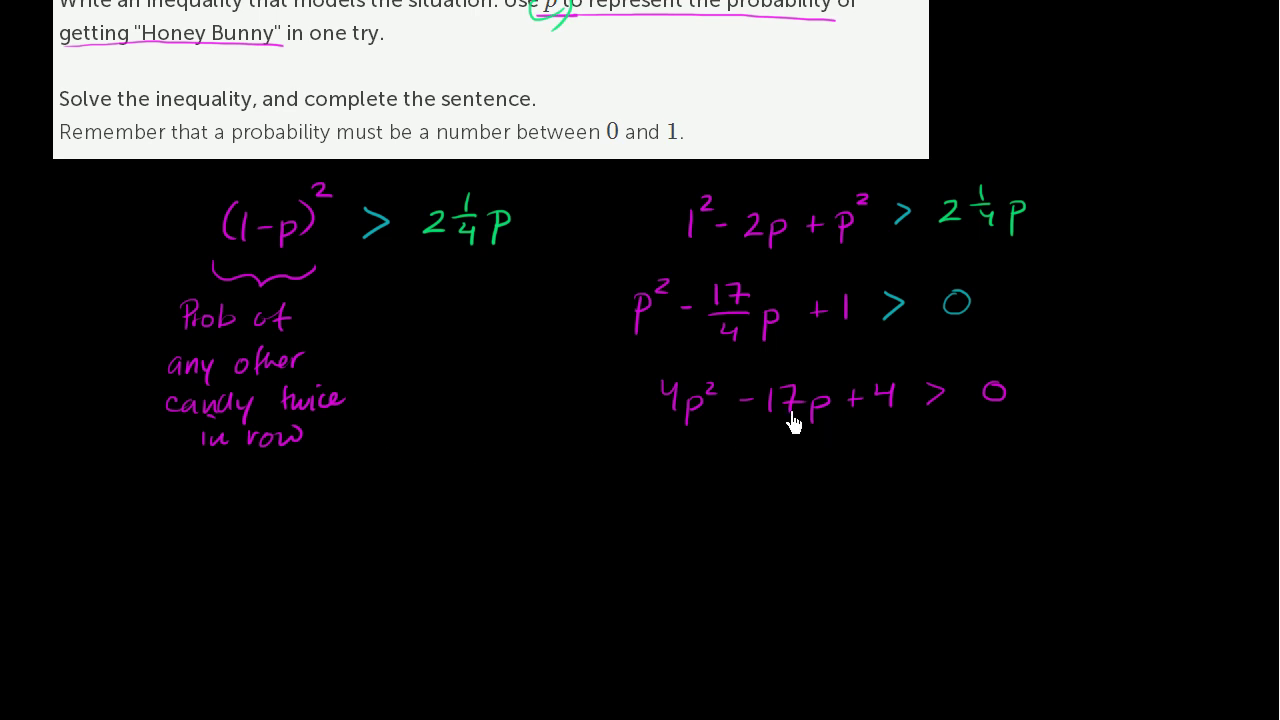 Write an inequality that models the situation. Use p to represent the probability of
getting "Honey Bunny" in one try.
Solve the inequality, and complete the sentence.
Remember that a probability must be a number between 0 and 1.
(1-p)² > 2 1/4 p
Prob of
any other
candy twice
in row
1² - 2p + p² > 2 1/4 p
p² - 17/4 p + 1 > 0
4p² - 17p + 4 > 0